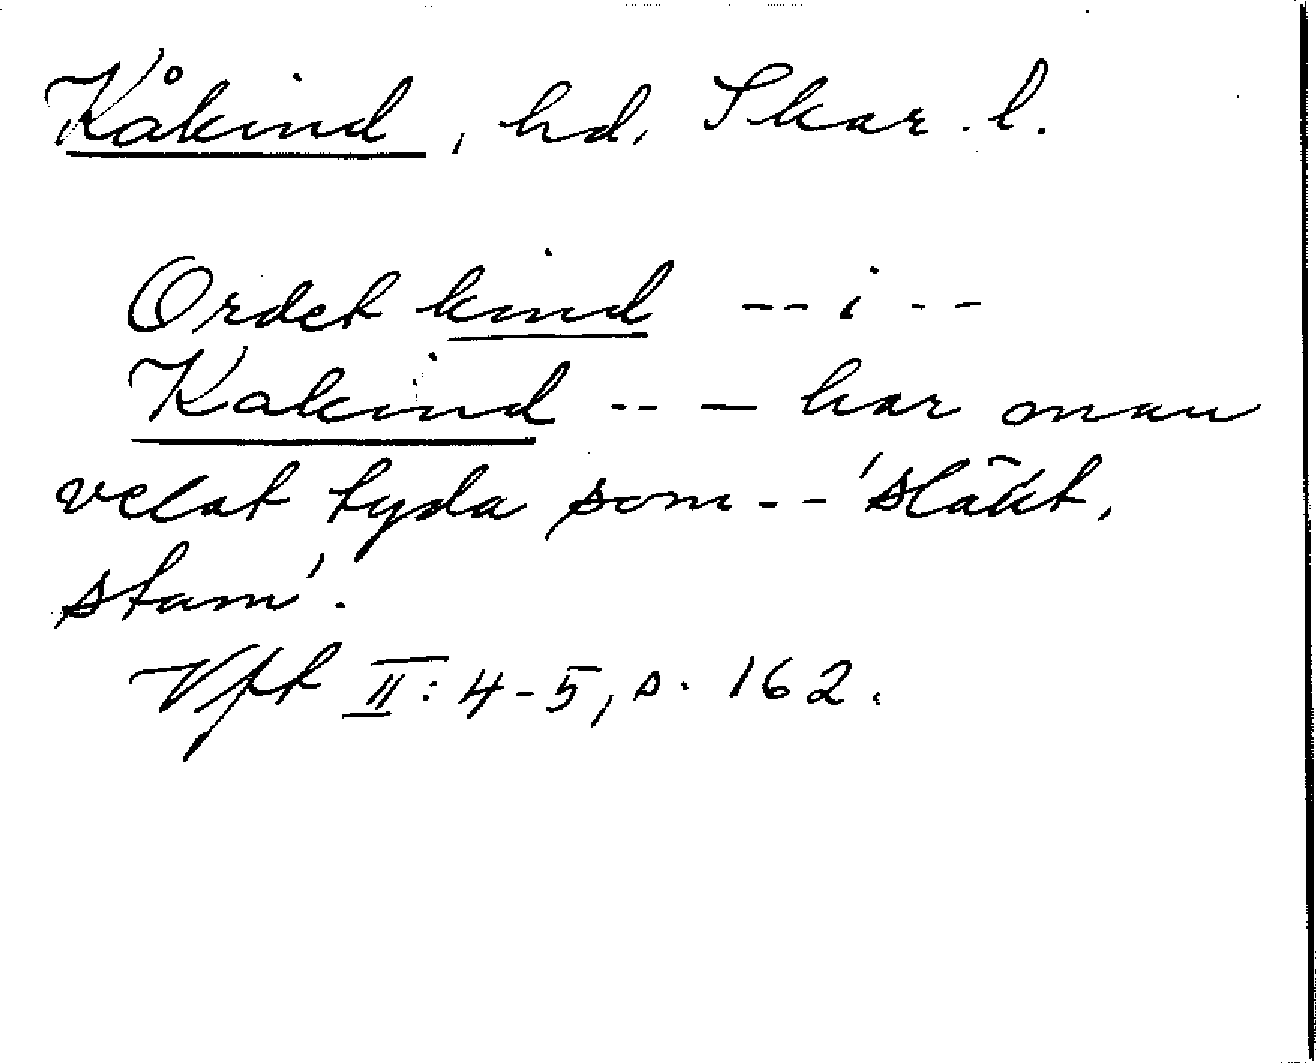 Kåkind, hd, Skar. l.
Ordet kind -- i --
Kakind -- — har man
velat tyda som -- 'släkt,
stam'.
Vft II: 4-5, s. 162.